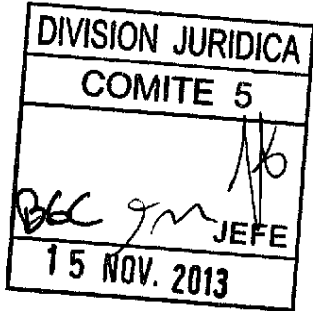 DIVISION JURIDICA
COMITE 5
JEFE
15 NOV. 2013